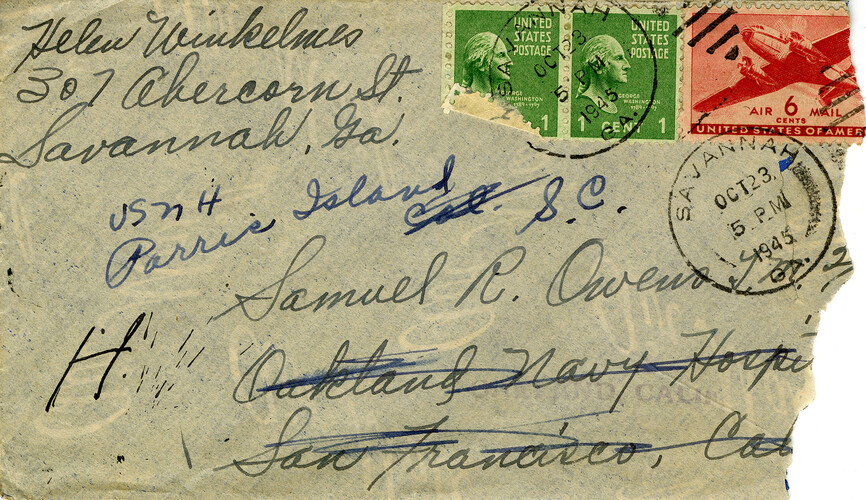 Helen Winkelmes
307 Abercorn St.
Savannah, Ga.
UNITED STATES POSTAGE
GEORGE WASHINGTON
1789-1797
1
UNITED STATES POSTAGE
GEORGE WASHINGTON
1789-1797
1 CENT 1
SAVANNAH
OCT 23
5 PM
1945
GA.
AIR 6 MAIL
CENTS
UNITED STATES OF AMER
SAVANNAH
OCT 23
5 PM
1945
GA.
USNH
Parris Island Cal. S.C.
Samuel R. Owens
H.
Oakland Navy Hospi
CALIF
San Francisco, Cal